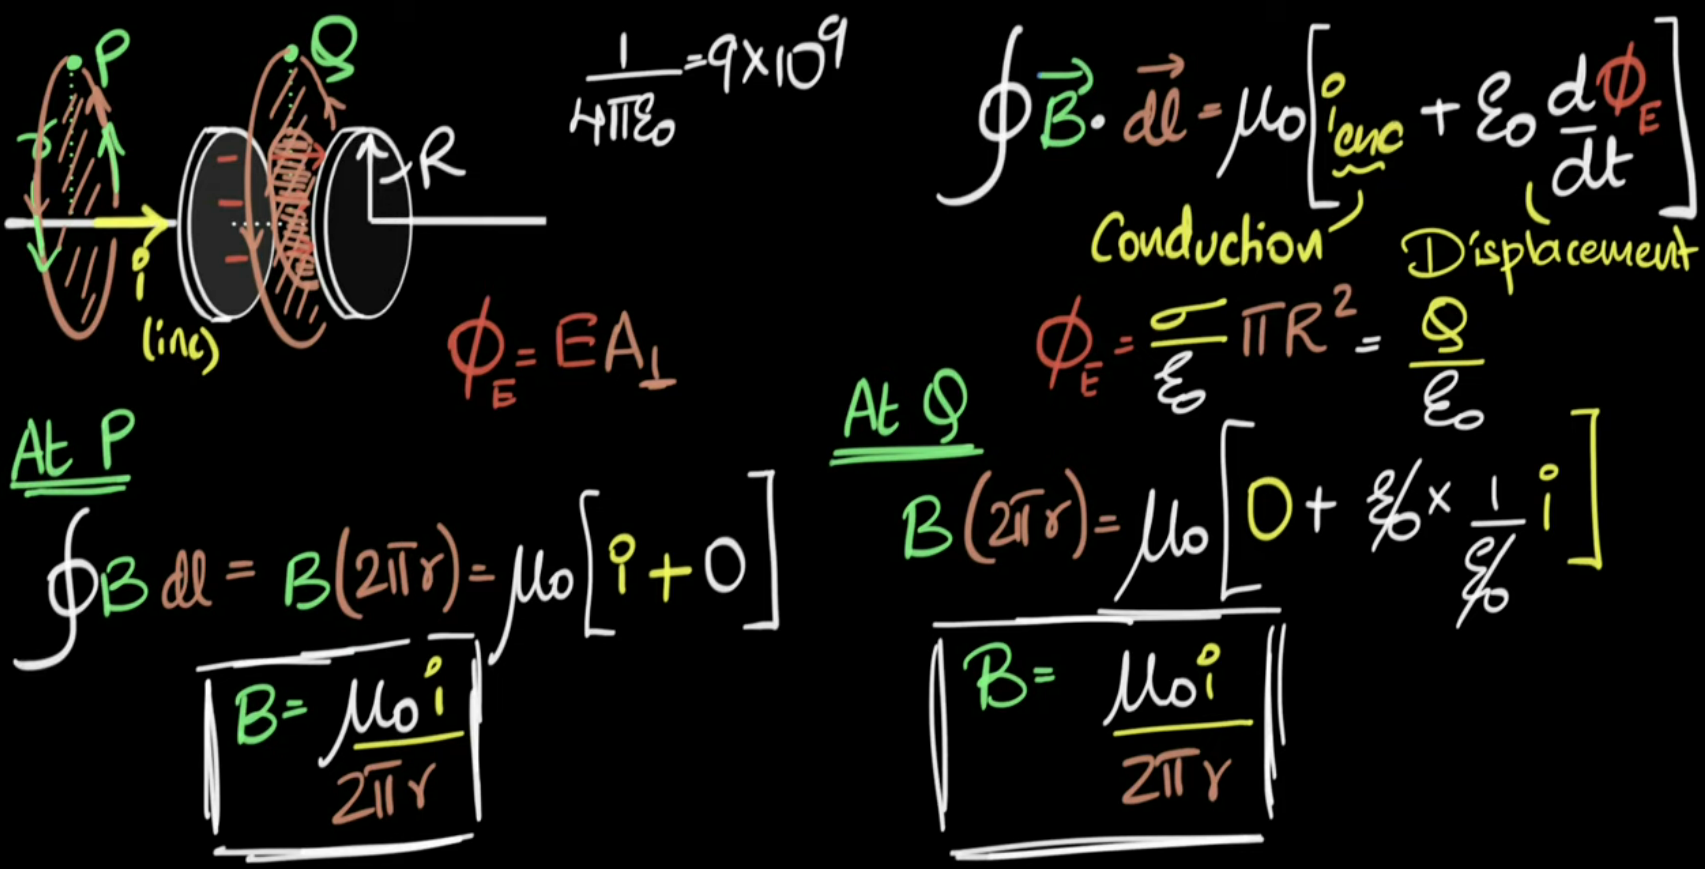 P
Q
r
R
i
(inc)
- - -
1/4πε₀ = 9×10⁹
∮ B⃗ · dl⃗ = μ₀ [ i enc + ε₀ dϕ_E/dt ]
Conduction
Displacement
ϕ_E = EA⊥
ϕ_E = σ/ε₀ πR² = Q/ε₀
At P
∮ B dl = B(2πr) = μ₀ [ i + 0 ]
B = μ₀i/2πr
At Q
B(2πr) = μ₀ [ 0 + ε₀ × 1/ε₀ i ]
B = μ₀i/2πr